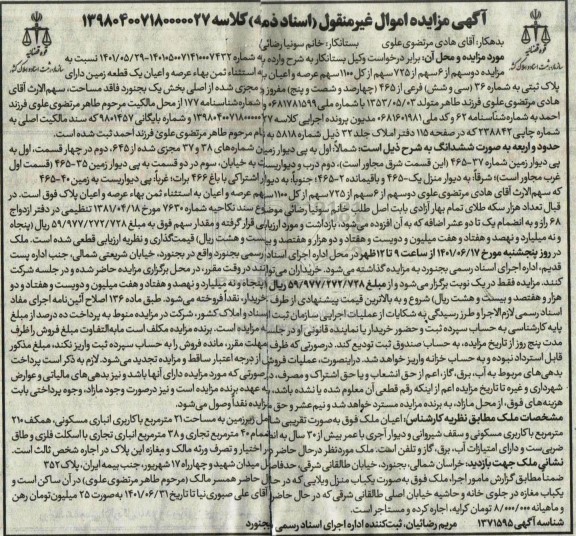 آگهی مزایده اموال غیرمنقول (اسناد ذمه) کلاسه ۱۳۹۸۰۴۰۰۷۱۸۰۰۰۰۰۲۷
بدهکار: آقای هادی مرتضوی علوی بستانکار: خانم سونیا رضائی
مورد مزایده و محل آن: برابر درخواست وکیل بستانکار به شرح وارده به شماره ۱۴۰۱۰۵۰۰۷۱۴۱۰۰۰۷۴۳۲-۱۴۰۱/۰۵/۲۹ نسبت به
مزایده دوسهم از ۶سهم از ۷۲۵ سهم از کل ۱۱۰۰ سهم عرصه و اعیان به استثناء ثمن بهاء عرصه و اعیان یک قطعه زمین دارای
پلاک ثبتی به شماره ۳۶ (سی و شش) فرعی از ۴۶۵ (چهارصد و شصت و پنج) مفروز و مجزی شده از اصلی بخش یک بجنورد فاقد مساحت، سهم‌الارث آقای
هادی مرتضوی علوی فرزند طاهر متولد ۱۳۵۳/۰۵/۰۳ با شماره ملی ۰۶۸۱۷۸۱۵۹۹ و شماره شناسنامه ۱۷۷ از محل مالکیت مرحوم طاهر مرتضوی علوی فرزند
احمد به شماره شناسنامه ۶۲ و کد ملی ۰۶۸۱۶۰۱۹۸۱ مدیون پرونده اجرایی کلاسه ۱۳۹۸۰۴۰۰۷۱۸۰۰۰۰۰۲۷ و شماره بایگانی ۹۸۰۱۴۵۷ که سند مالکیت اصلی به
شماره چاپی ۲۳۸۸۴۲ که در صفحه ۱۱۵ دفتر املاک جلد ۳۲ ذیل شماره ۵۸۱۸ به نام مرحوم طاهر مرتضوی علوی فرزند احمد ثبت شده است.
حدود و اربعه به صورت ششدانگ به شرح ذیل است: شمالاً: اول به پی دیوار زمین شماره‌های ۳۸ و ۳۷ مجزی شده از ۶۴۵، دوم در چهار قسمت، اول به
پی دیوار زمین شماره ۳۷-۴۶۵ (این قسمت شرق مجاور است)، دوم درب و دیواریست به خیابان، سوم در دو قسمت به پی دیوار زمین ۳۵-۴۶۵ (قسمت اول
غرب مجاور است) شرقاً: به دیوار منزل یک-۴۶۵ و باقیمانده ۲-۴۶۵؛ جنوباً: به دیوار اشتراکی با باغ ۴۶۶ برات؛ غرباً: پی دیواریست به زمین ۴۰-۴۶۵
که سهم‌الارث آقای هادی مرتضوی علوی دوسهم از ۶ سهم از ۷۲۵ سهم از کل ۱۱۰۰ سهم عرصه و اعیان به استثناء ثمن بهاء عرصه و اعیان پلاک فوق است. در
قبال تعداد هزار سکه طلای تمام بهار آزادی بابت اصل طلب خانم سونیا رضائی موضوع سند نکاحیه شماره ۷۶۳۰ مورخ ۱۳۸۱/۰۴/۱۸ تنظیمی در دفتر ازدواج
۶۸ راز و به انضمام یک تا دو عشر اضافه که به آن افزوده می‌شود، بازداشت و مورد ارزیابی قرار گرفته و مقدار سهم فوق به مبلغ ۵۹/۹۷۷/۲۷۲/۷۲۸ ریال (پنجاه
و نه میلیارد و نهصد و هفتاد و هفت میلیون و دویست و هفتاد و دو هزار و هفتصد و بیست و هشت ریال) قیمت‌گذاری و نظریه ارزیابی قطعی شده است. ملک
در روز پنجشنبه مورخ ۱۴۰۱/۰۶/۱۷ از ساعت ۹ تا ۱۲ ظهر در محل اداره اجرای اسناد رسمی بجنورد واقع در بجنورد، خیابان شریعتی شمالی، جنب اداره پست
قدیم، اداره اجرای اسناد رسمی بجنورد به مزایده گذاشته می‌شود. خریداران می‌توانند در وقت مقرر، در محل برگزاری مزایده حاضر شده و در جلسه شرکت
کنند. مزایده فقط در یک نوبت برگزار می‌شود و از مبلغ ۵۹/۹۷۷/۲۷۲/۷۲۸ ریال (پنجاه و نه میلیارد و نهصد و هفتاد و هفت میلیون و دویست و هفتاد و دو
هزار و هفتصد و بیست و هشت ریال) شروع و به بالاترین قیمت پیشنهادی از طرف خریدار، نقداً فروخته می‌شود. طبق ماده ۱۳۶ اصلاح آئین‌نامه اجرای مفاد
اسناد رسمی لازم‌الاجرا و طرز رسیدگی به شکایات از عملیات اجرایی سازمان ثبت اسناد و املاک کشور، شرکت در مزایده منوط به پرداخت ده درصد از مبلغ
پایه کارشناسی به حساب سپرده ثبت و حضور خریدار یا نماینده قانونی او در جلسه مزایده است. برنده مزایده مکلف است مابه‌التفاوت مبلغ فروش را ظرف
مدت پنج روز از تاریخ مزایده، به حساب صندوق ثبت تودیع کند. درصورتی که ظرف مهلت مقرر، مانده فروش را به حساب سپرده ثبت واریز نکند، مبلغ مذکور
قابل استرداد نبوده و به حساب خزانه واریز خواهد شد. دراینصورت، عملیات فروش از درجه اعتبار ساقط و مزایده تجدید می‌شود. لازم به ذکر است پرداخت
بدهی‌های مربوط به آب، برق، گاز، اعم از حق انشعاب و یا حق اشتراک و مصرف، درصورتی که مورد مزایده دارای آنها باشد و نیز بدهی‌های مالیاتی و عوارض
شهرداری و غیره تا تاریخ مزایده اعم از اینکه رقم قطعی آن معلوم شده یا نشده باشد، به عهده برنده مزایده است و نیز درصورت وجود مازاد، وجوه پرداختی بابت
هزینه‌های فوق، از محل مازاد، به برنده مزایده مسترد خواهد شد و نیم عشر و حق مزایده نقداً وصول می‌شود.
مشخصات ملک مطابق نظریه کارشناس: اعیان ملک فوق به‌صورت تقریبی شامل زیرزمین به مساحت ۲۱ مترمربع با کاربری انباری مسکونی، همکف ۲۱۰
مترمربع با کاربری مسکونی و سقف شیروانی و دیوار آجری با عمر بیش از ۳۰ سال به انضمام ۴۰ مترمربع تجاری و ۳۸ مترمربع انباری تجاری با اسکلت فلزی و طاق
ضربی‌ست و دارای امتیازات آب، برق، گاز و تلفن است. ملک موردنظر درحال حاضر در اختیار و تصرف ورثه مالک و مغازه این پلاک در اجاره شخص ثالث است.
نشانی ملک جهت بازدید: خراسان شمالی، بجنورد، خیابان طالقانی شرقی، حدفاصل میدان شهید و چهارراه ۱۷ شهریور، جنب بیمه ایران، پلاک ۳۵۲
ضمناً مطابق گزارش مامور اجرا، ملک فوق به‌صورت یکباب منزل ویلایی که در حال حاضر همسر مالک (مرحوم طاهر مرتضوی علوی) در آن ساکن است و
یکباب مغازه در جلوی خانه و حاشیه خیابان اصلی طالقانی شرقی که در حال حاضر آقای علی صبوری‌نیا تا تاریخ ۱۴۰۱/۰۶/۳۱ به‌صورت ۲۵ میلیون تومان رهن
و ماهیانه ۸/۰۰۰/۰۰۰ تومان کرایه، اجاره کرده و مستاجر است.
شناسه آگهی ۱۳۷۱۵۹۵ مریم رضائیان، ثبت‌کننده اداره اجرای اسناد رسمی بجنورد